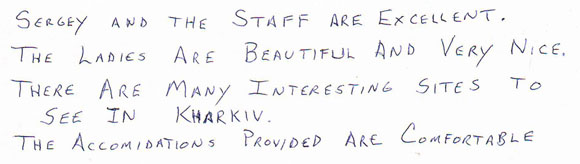 SERGEY AND THE STAFF ARE EXCELLENT.
THE LADIES ARE BEAUTIFUL AND VERY NICE.
THERE ARE MANY INTERESTING SITES TO
SEE IN KHARKIV.
THE ACCOMIDATIONS PROVIDED ARE COMFORTABLE